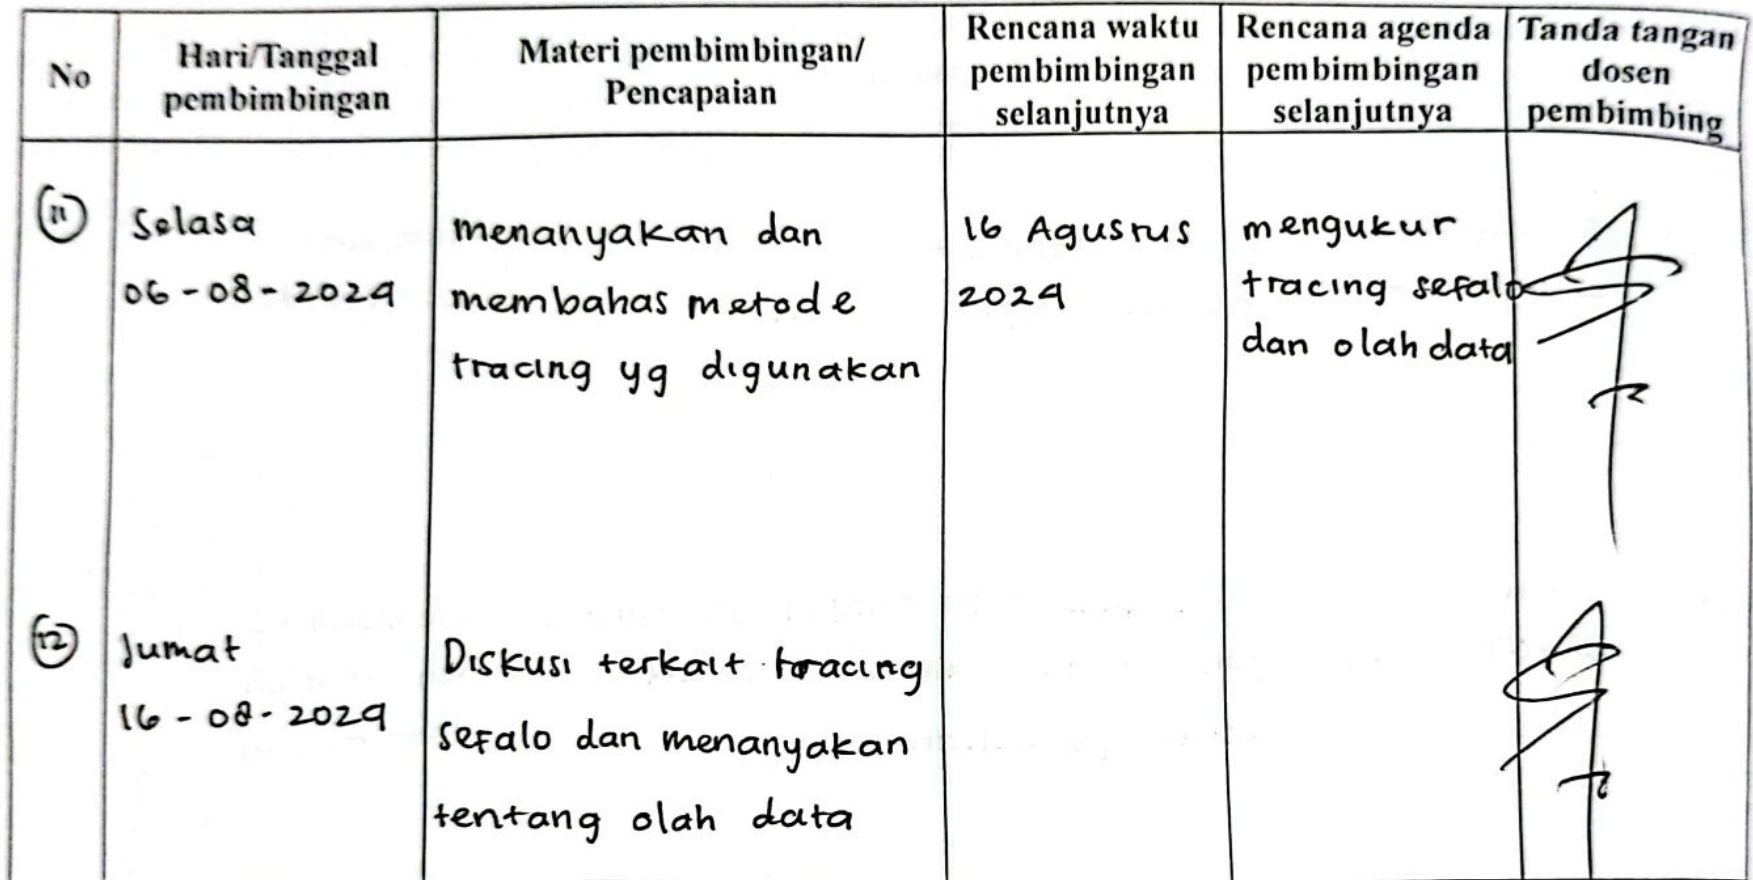 No
Hari/Tanggal
pembimbingan
Materi pembimbingan/
Pencapaian
Rencana waktu
pembimbingan
selanjutnya
Rencana agenda
pembimbingan
selanjutnya
Tanda tangan
dosen
pembimbing
11
Selasa
06-08-2024
menanyakan dan
membahas metode
tracing yg digunakan
16 Agustus
2024
mengukur
tracing sefalo
dan olah data
12
Jumat
16-08-2024
Diskusi terkait tracing
sefalo dan menanyakan
tentang olah data